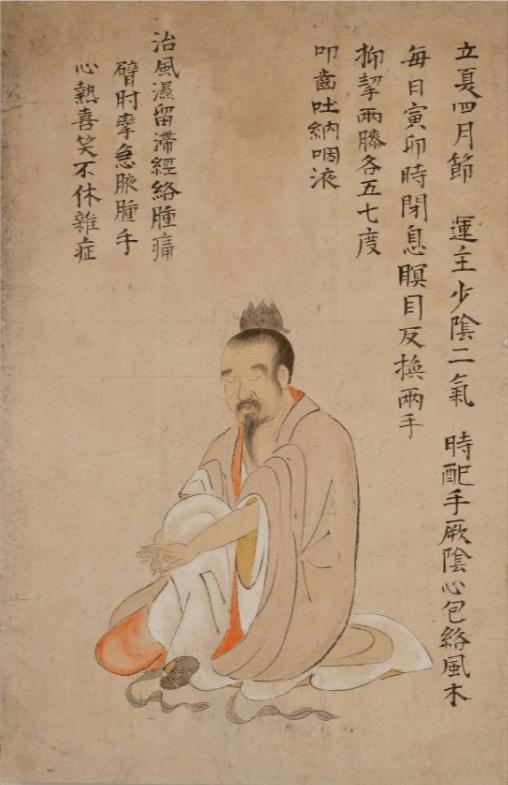 立夏四月節　運主少陰二氣　時配手厥陰心包絡風木
每日寅卯時閉息瞑目反換兩手
抑掣兩膝各五七度
叩齒吐納咽液
治風濕留滯經絡腫痛
臂肘攣急腋腫手
心熱喜笑不休雜症